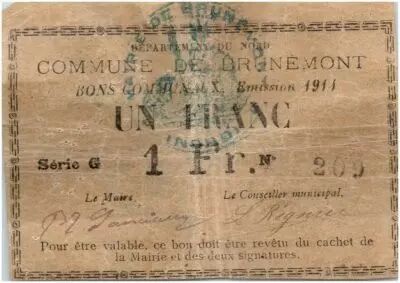 MAIRIE DE BRUNEMONT
DÉPARTEMENT DU NORD
COMMUNE DE BRUNÉMONT
BONS COMMUNAUX, Emission 1914
UN FRANC
(NORD)
Série G 1 Fr. N° 209
Le Maire, Le Conseiller municipal,
Pour être valable, ce bon doit être revêtu du cachet
de la Mairie et des deux signatures.